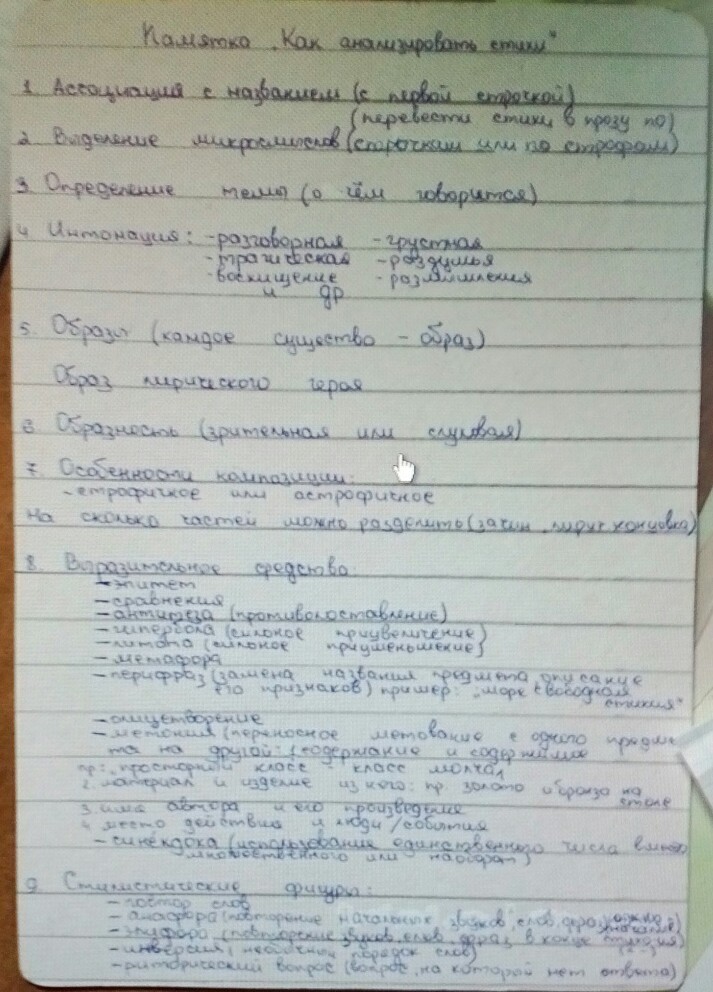 Памятка „Как анализировать стихи"
1. Ассоциация с названием (с первой строчкой)
(перевести стихи в прозу по)
2. Выделение микросмыслов (строчкам или по строфам)
3. Определение темы (о чём говорится)
4. Интонация: -разговорная -грустная
-трагическая -раздумья
-восхищение -размышления
и др
5. Образы (каждое существо - образ)
Образ лирического героя
6. Образность (зрительная или слуховая)
7. Особенности композиции:
-строфичное или астрофичное
На сколько частей можно разделить (зачин, лирич. концовка)
8. Выразительное средство:
-эпитет
-сравнения
-антитеза (противопоставление)
-гипербола (сильное приувеличение)
-литота (сильное приуменьшение)
-метафора
-перифраз (замена названия предмета описание
по признаков) пример: „море свободная
стихия"
-олицетворение
-метонимия (переносное метование с одного предме
та на другой: (содержание и содержимое
пр: „просторный класс - класс молчал
2. материал и изделие из него: пр. золото и бронза на
столе
3. имя автора и его произведение
4. место действия и люди/события
-синекдока (использование единственного числа вместо
множественного или наоборот)
9. Стилистические фигуры:
-повтор слов
-анафора (повторение начальных звуков, слов, фраз
-эпифора (повторение звуков, слов, фраз в конце
-инверсия (необычный порядок слов)
-риторический вопрос (вопрос, на который нет ответа)